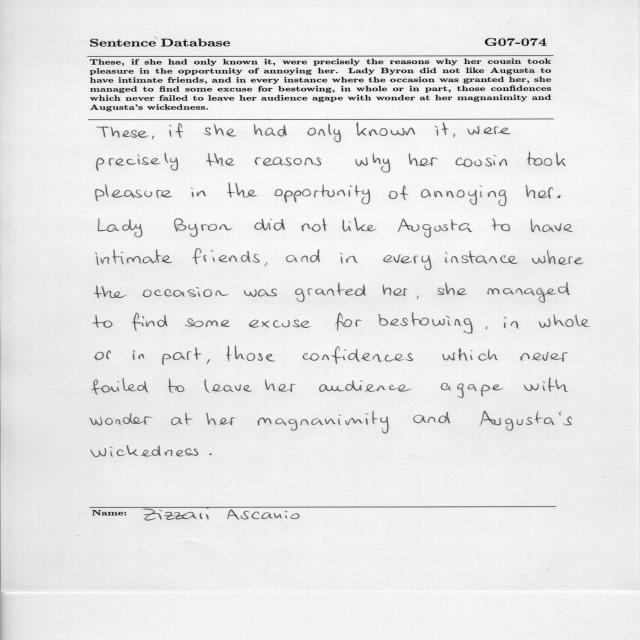 Sentence Database G07-074
These, if she had only known it, were precisely the reasons why her cousin took
pleasure in the opportunity of annoying her. Lady Byron did not like Augusta to
have intimate friends, and in every instance where the occasion was granted her, she
managed to find some excuse for bestowing, in whole or in part, those confidences
which never failed to leave her audience agape with wonder at her magnanimity and
Augusta's wickedness.
These, if she had only known it, were
precisely the reasons why her cousin took
pleasure in the opportunity of annoying her.
Lady Byron did not like Augusta to have
intimate friends, and in every instance where
the occasion was granted her, she managed
to find some excuse for bestowing, in whole
or in part, those confidences which never
failed to leave her audience agape with
wonder at her magnanimity and Augusta's
wickedness.
Name: Zizzari Ascanio